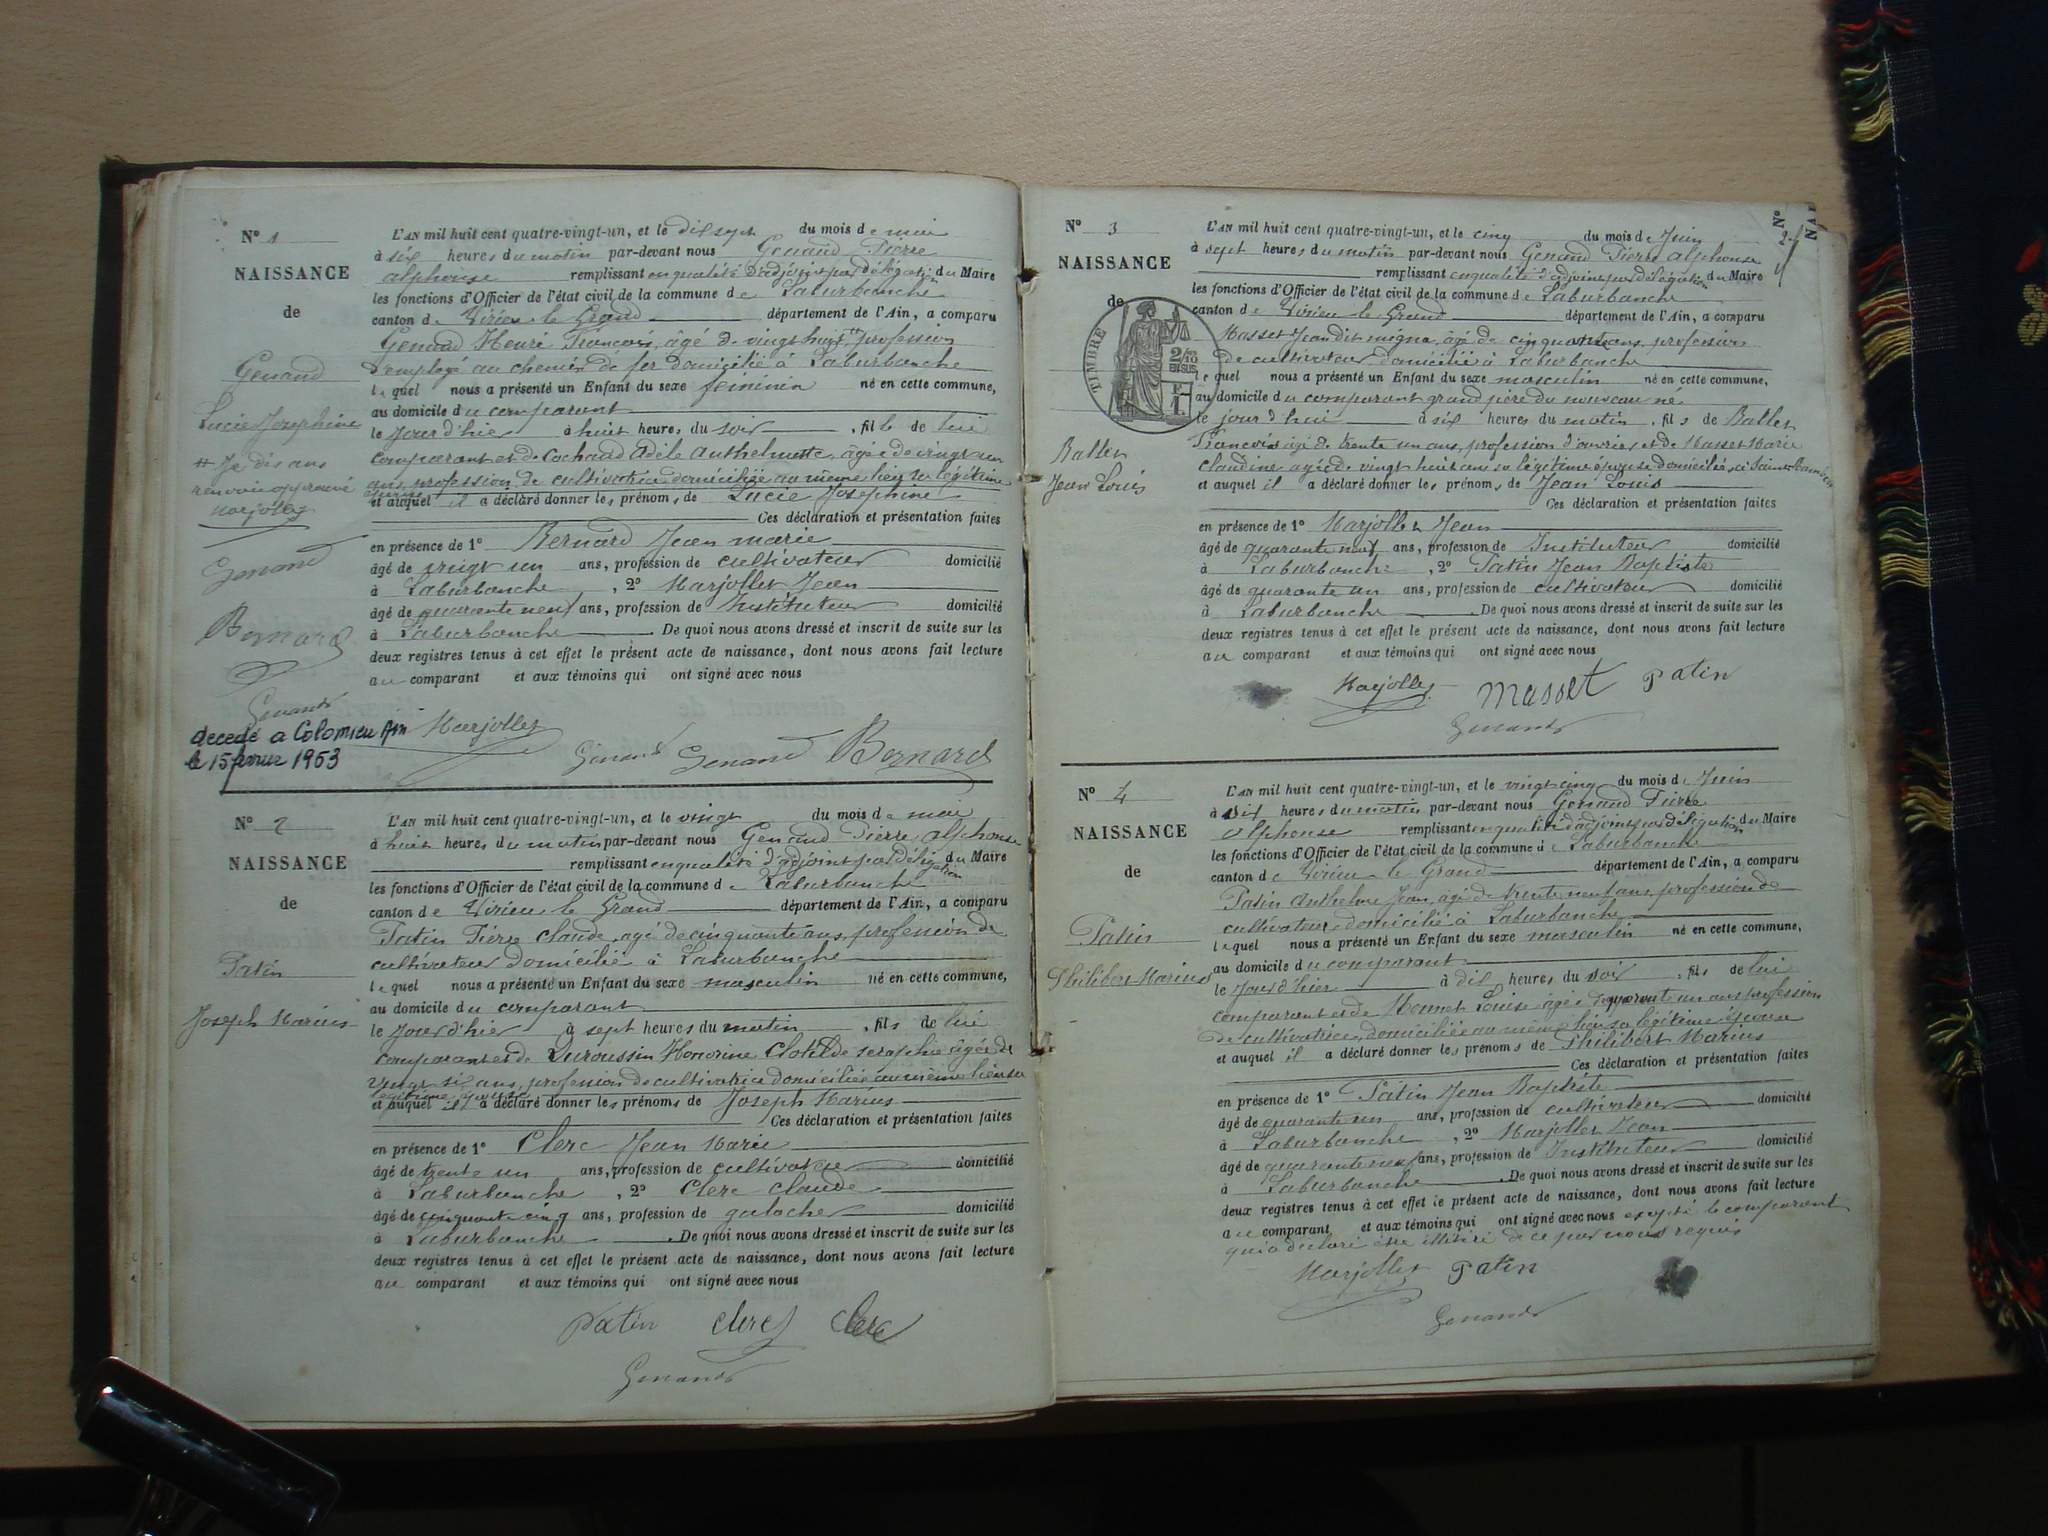 N° 1
NAISSANCE
de
Genand
Lucie Josephine
Genand
Bernard
Genand
decedé a Colomieu Ain
le 15 fevrier 1963
L'AN mil huit cent quatre-vingt-un, et le dix sept du mois de mai
à six heures du matin par-devant nous Genand Pierre
alphonse remplissant en qualité d'adjoint par délégation du Maire
les fonctions d'Officier de l'état civil de la commune de Laburbanche
canton de Virieu le Grand département de l'Ain, a comparu
Genand Henri François, âgé de vingt huit # profession
d'employé au chemin de fer domicilié à Laburbanche
lequel nous a présenté un Enfant du sexe féminin né en cette commune,
au domicile du comparant
le jour d'hier à huit heures du soir, fille de lui
comparant et de Cochard Adèle Anthelmette, âgée de vingt un
ans, profession de cultivatrice domiciliée au même lieu sa légitime
épouse
et auquel il a déclaré donner les prénoms de Lucie Joséphine
Ces déclaration et présentation faites
en présence de 1° Bernard Jean marie
âgé de vingt un ans, profession de cultivateur domicilié
à Laburbanche, 2° Marjollet Jean
âgé de quarante neuf ans, profession de Instituteur domicilié
à Laburbanche. De quoi nous avons dressé et inscrit de suite sur les
deux registres tenus à cet effet le présent acte de naissance, dont nous avons fait lecture
au comparant et aux témoins qui ont signé avec nous
Marjollet Genand Genand Bernard
N° 2
NAISSANCE
de
Patin
Joseph Marius
L'AN mil huit cent quatre-vingt-un, et le vingt du mois de mai
à huit heures du matin par-devant nous Genand Pierre alphonse
remplissant en qualité d'adjoint par délégation du Maire
les fonctions d'Officier de l'état civil de la commune de Laburbanche
canton de Virieu le Grand département de l'Ain, a comparu
Patin Pierre Claude, âgé de cinquante ans, profession de
cultivateur domicilié à Laburbanche
lequel nous a présenté un Enfant du sexe masculin né en cette commune,
au domicile du comparant
le jour d'hier à sept heures du matin, fils de lui
comparant et de Duroussin Honorine Clotilde seraphie âgée de
vingt six ans, profession de cultivatrice domiciliée au même lieu sa
légitime épouse
et auquel il a déclaré donner les prénoms de Joseph Marius
Ces déclaration et présentation faites
en présence de 1° Clerc Jean Marie
âgé de trente un ans, profession de cultivateur domicilié
à Laburbanche, 2° Clerc Claude
âgé de cinquante cinq ans, profession de galocher domicilié
à Laburbanche. De quoi nous avons dressé et inscrit de suite sur les
deux registres tenus à cet effet le présent acte de naissance, dont nous avons fait lecture
au comparant et aux témoins qui ont signé avec nous
Patin Clerc Clerc
Genand
N° 3
NAISSANCE
de
TIMBRE
2/10
EN SUS
Ballet
Jean Louis
L'AN mil huit cent quatre-vingt-un, et le cinq du mois de Juin
à sept heures du matin par-devant nous Genand Pierre alphonse
remplissant en qualité d'adjoint par délégation du Maire
les fonctions d'Officier de l'état civil de la commune de Laburbanche
canton de Virieu le Grand département de l'Ain, a comparu
Masset Jean dit migna, âgé de cinquante ans, profession
de cultivateur domicilié à Laburbanche
lequel nous a présenté un Enfant du sexe masculin né en cette commune,
au domicile du comparant grand père du nouveau né
le jour d'hui à six heures du matin, fils de Ballet
François âgé de trente un ans, profession d'ouvrier et de Masset Marie
claudine agée de vingt huit ans sa légitime épouse domiciliés à
et auquel il a déclaré donner les prénoms de Jean Louis
Ces déclaration et présentation faites
en présence de 1° Marjollet Jean
âgé de quarante neuf ans, profession de Instituteur domicilié
à Laburbanche, 2° Patin Jean Baptiste
âgé de quarante un ans, profession de cultivateur domicilié
à Laburbanche. De quoi nous avons dressé et inscrit de suite sur les
deux registres tenus à cet effet le présent acte de naissance, dont nous avons fait lecture
au comparant et aux témoins qui ont signé avec nous
Marjollet Masset Patin
Genand
N° 4
NAISSANCE
de
Patin
Philibert Marius
L'AN mil huit cent quatre-vingt-un, et le vingt cinq du mois de Juin
à dix heures du matin par-devant nous Genand Pierre
Alphonse remplissant en qualité d'adjoint par délégation du Maire
les fonctions d'Officier de l'état civil de la commune de Laburbanche
canton de Virieu le Grand département de l'Ain, a comparu
Patin Anthelme Jean, âgé de trente neuf ans, profession de
cultivateur domicilié à Laburbanche
lequel nous a présenté un Enfant du sexe masculin né en cette commune,
au domicile du comparant
le jour d'hier à dix heures du soir, fils de lui
comparant et de Monnet Louise âgée de quarante un ans profession
de cultivatrice, domiciliée au même lieu sa légitime épouse
et auquel il a déclaré donner les prénoms de Philibert Marius
Ces déclaration et présentation faites
en présence de 1° Patin Jean Baptiste
âgé de quarante un ans, profession de cultivateur domicilié
à Laburbanche, 2° Marjollet Jean
âgé de quarante neuf ans, profession de Instituteur domicilié
à Laburbanche. De quoi nous avons dressé et inscrit de suite sur les
deux registres tenus à cet effet le présent acte de naissance, dont nous avons fait lecture
au comparant et aux témoins qui ont signé avec nous excepté le comparant
qui a déclaré être illétiré de ce par nous requis
Marjollet Patin
Genand